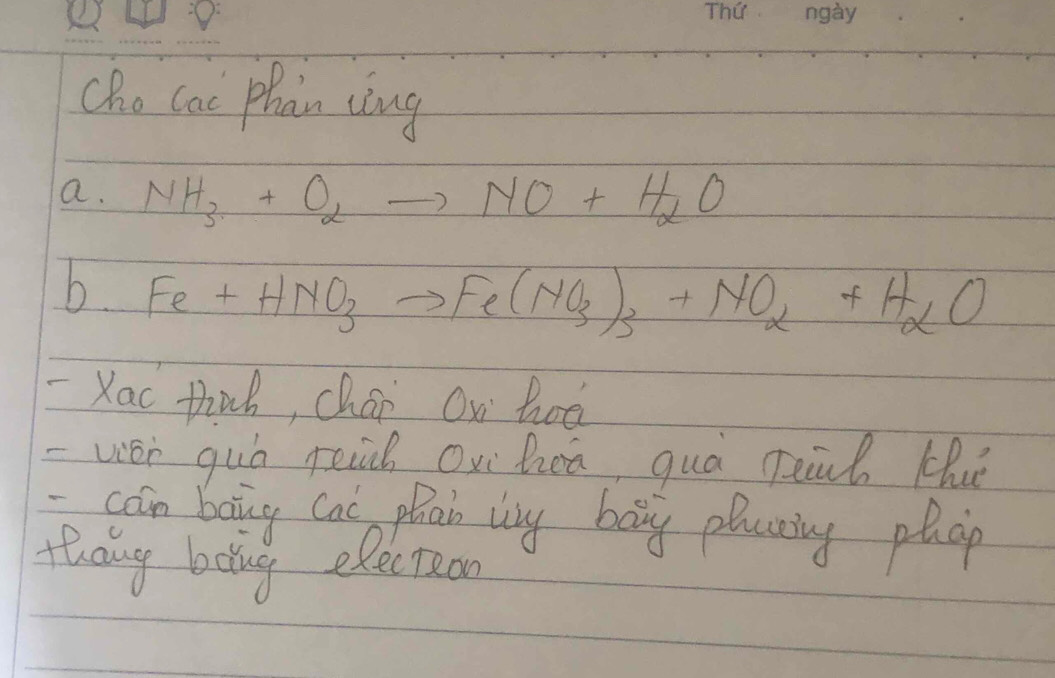 Thứ. ngày . .
Cho các phản ứng
a. NH₃ + O₂ → NO + H₂O
b. Fe + HNO₃ → Fe(NO₃)₃ + NO₂ + H₂O
- Xác định, chất Oxi hoá
- viết quá trình Oxi hoá, quá trình khử
- cân bằng các phản ứng bằng phương pháp
thăng bằng electron